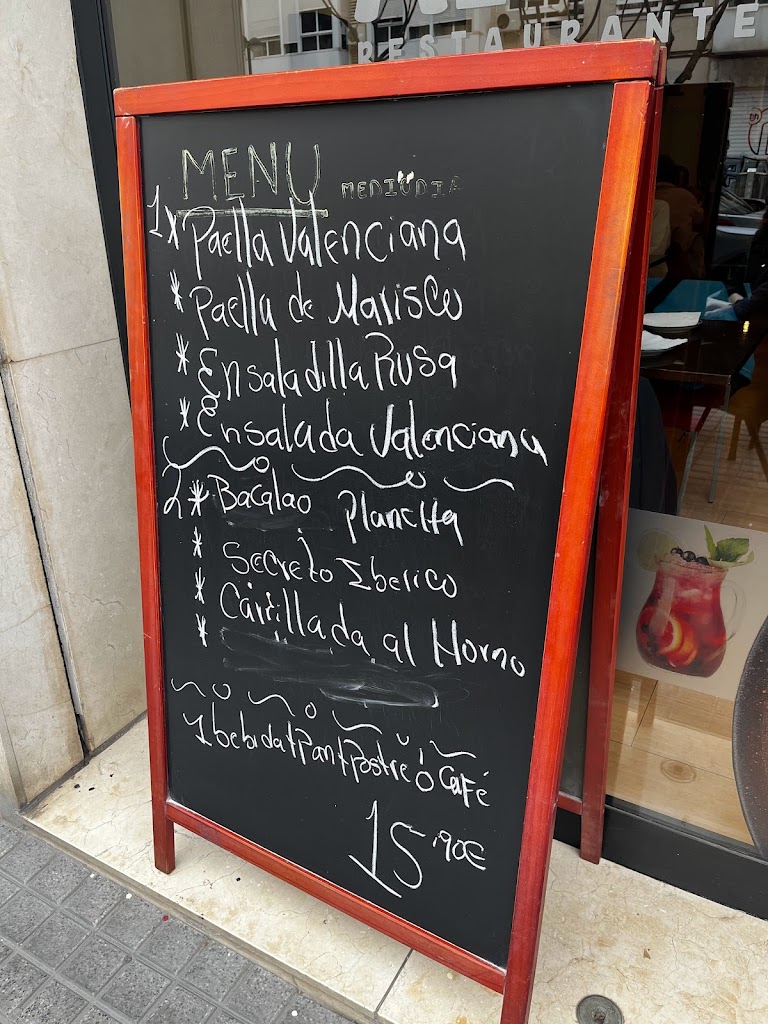 RESTAURANTE
MENU MEDIODIA
1* Paella Valenciana
* Paella de Marisco
* Ensaladilla Rusa
* Ensalada Valenciana
2* Bacalao Plancha
* Secreto Iberico
* Carrillada al Horno
*
1 bebida + Pan + Postre ó Café
15'90€